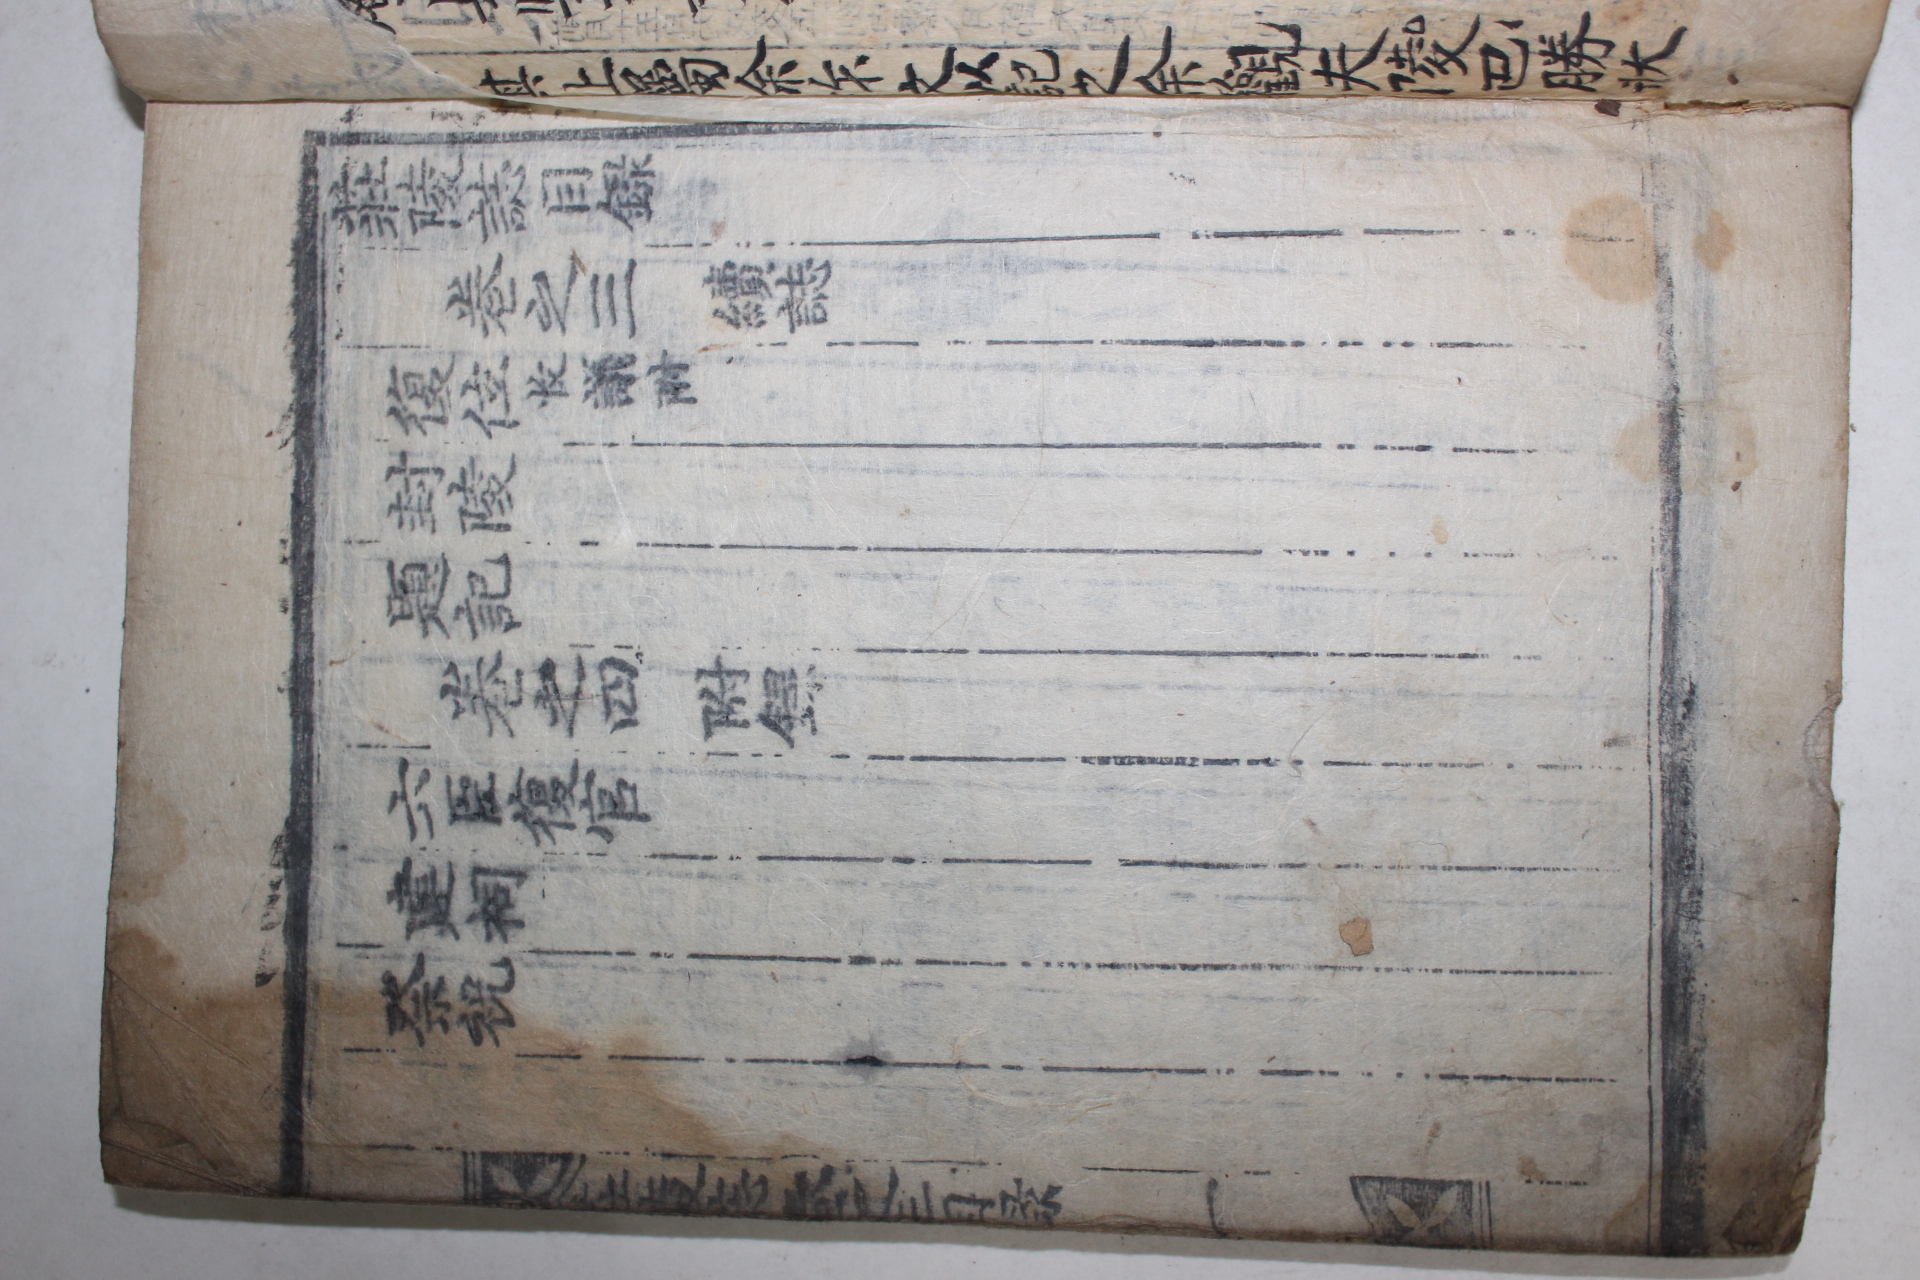 其上蜀余作文以記之余觀夫陵巴勝狀
莊陵誌目錄
卷之三 續誌
復位收議附
封陵
題記
卷之四 附錄
六臣復官
建祠
祭祝
莊陵誌 卷之三目录 一